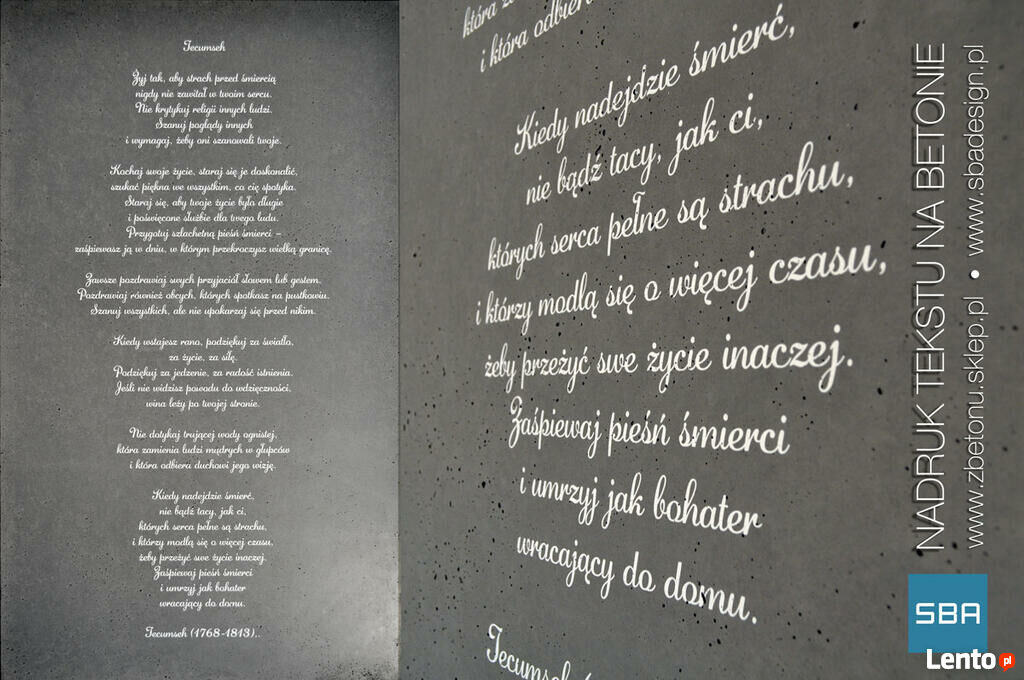 Tecumseh
Żyj tak, aby strach przed śmiercią
nigdy nie zawitał w twoim sercu.
Nie krytykuj religii innych ludzi.
Szanuj poglądy innych
i wymagaj, żeby oni szanowali twoje.
Kochaj swoje życie, staraj się je doskonalić,
szukać piękna we wszystkim, co cię spotyka.
Staraj się, aby twoje życie było długie
i poświęcone służbie dla twego ludu.
Przygotuj szlachetną pieśń śmierci –
zaśpiewasz ją w dniu, w którym przekroczysz wielką granicę.
Zawsze pozdrawiaj swych przyjaciół słowem lub gestem.
Pozdrawiaj również obcych, których spotkasz na pustkowiu.
Szanuj wszystkich, ale nie upokarzaj się przed nikim.
Kiedy wstajesz rano, podziękuj za światło,
za życie, za siłę.
Podziękuj za jedzenie, za radość istnienia.
Jeśli nie widzisz powodu do wdzięczności,
wina leży po twojej stronie.
Nie dotykaj trującej wody ognistej,
która zamienia ludzi mądrych w głupców
i która odbiera duchowi jego wizję.
Kiedy nadejdzie śmierć,
nie bądź tacy, jak ci,
których serca pełne są strachu,
i którzy modlą się o więcej czasu,
żeby przeżyć swe życie inaczej.
Zaśpiewaj pieśń śmierci
i umrzyj jak bohater
wracający do domu.
Tecumseh (1768-1813)..
która
i która odbiera
Kiedy nadejdzie śmierć,
nie bądź tacy, jak ci,
których serca pełne są strachu,
i którzy modlą się o więcej czasu,
żeby przeżyć swe życie inaczej.
Zaśpiewaj pieśń śmierci
i umrzyj jak bohater
wracający do domu.
Tecumseh
NADRUK TEKSTU NA BETONIE
www.zbetonu.sklep.pl • www.sbadesign.pl
SBA
Lento pl